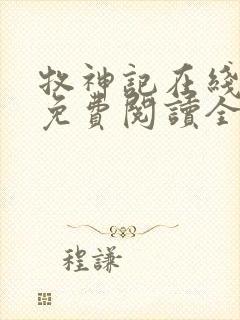 牧神記在綫
免費閱讀全
程謙